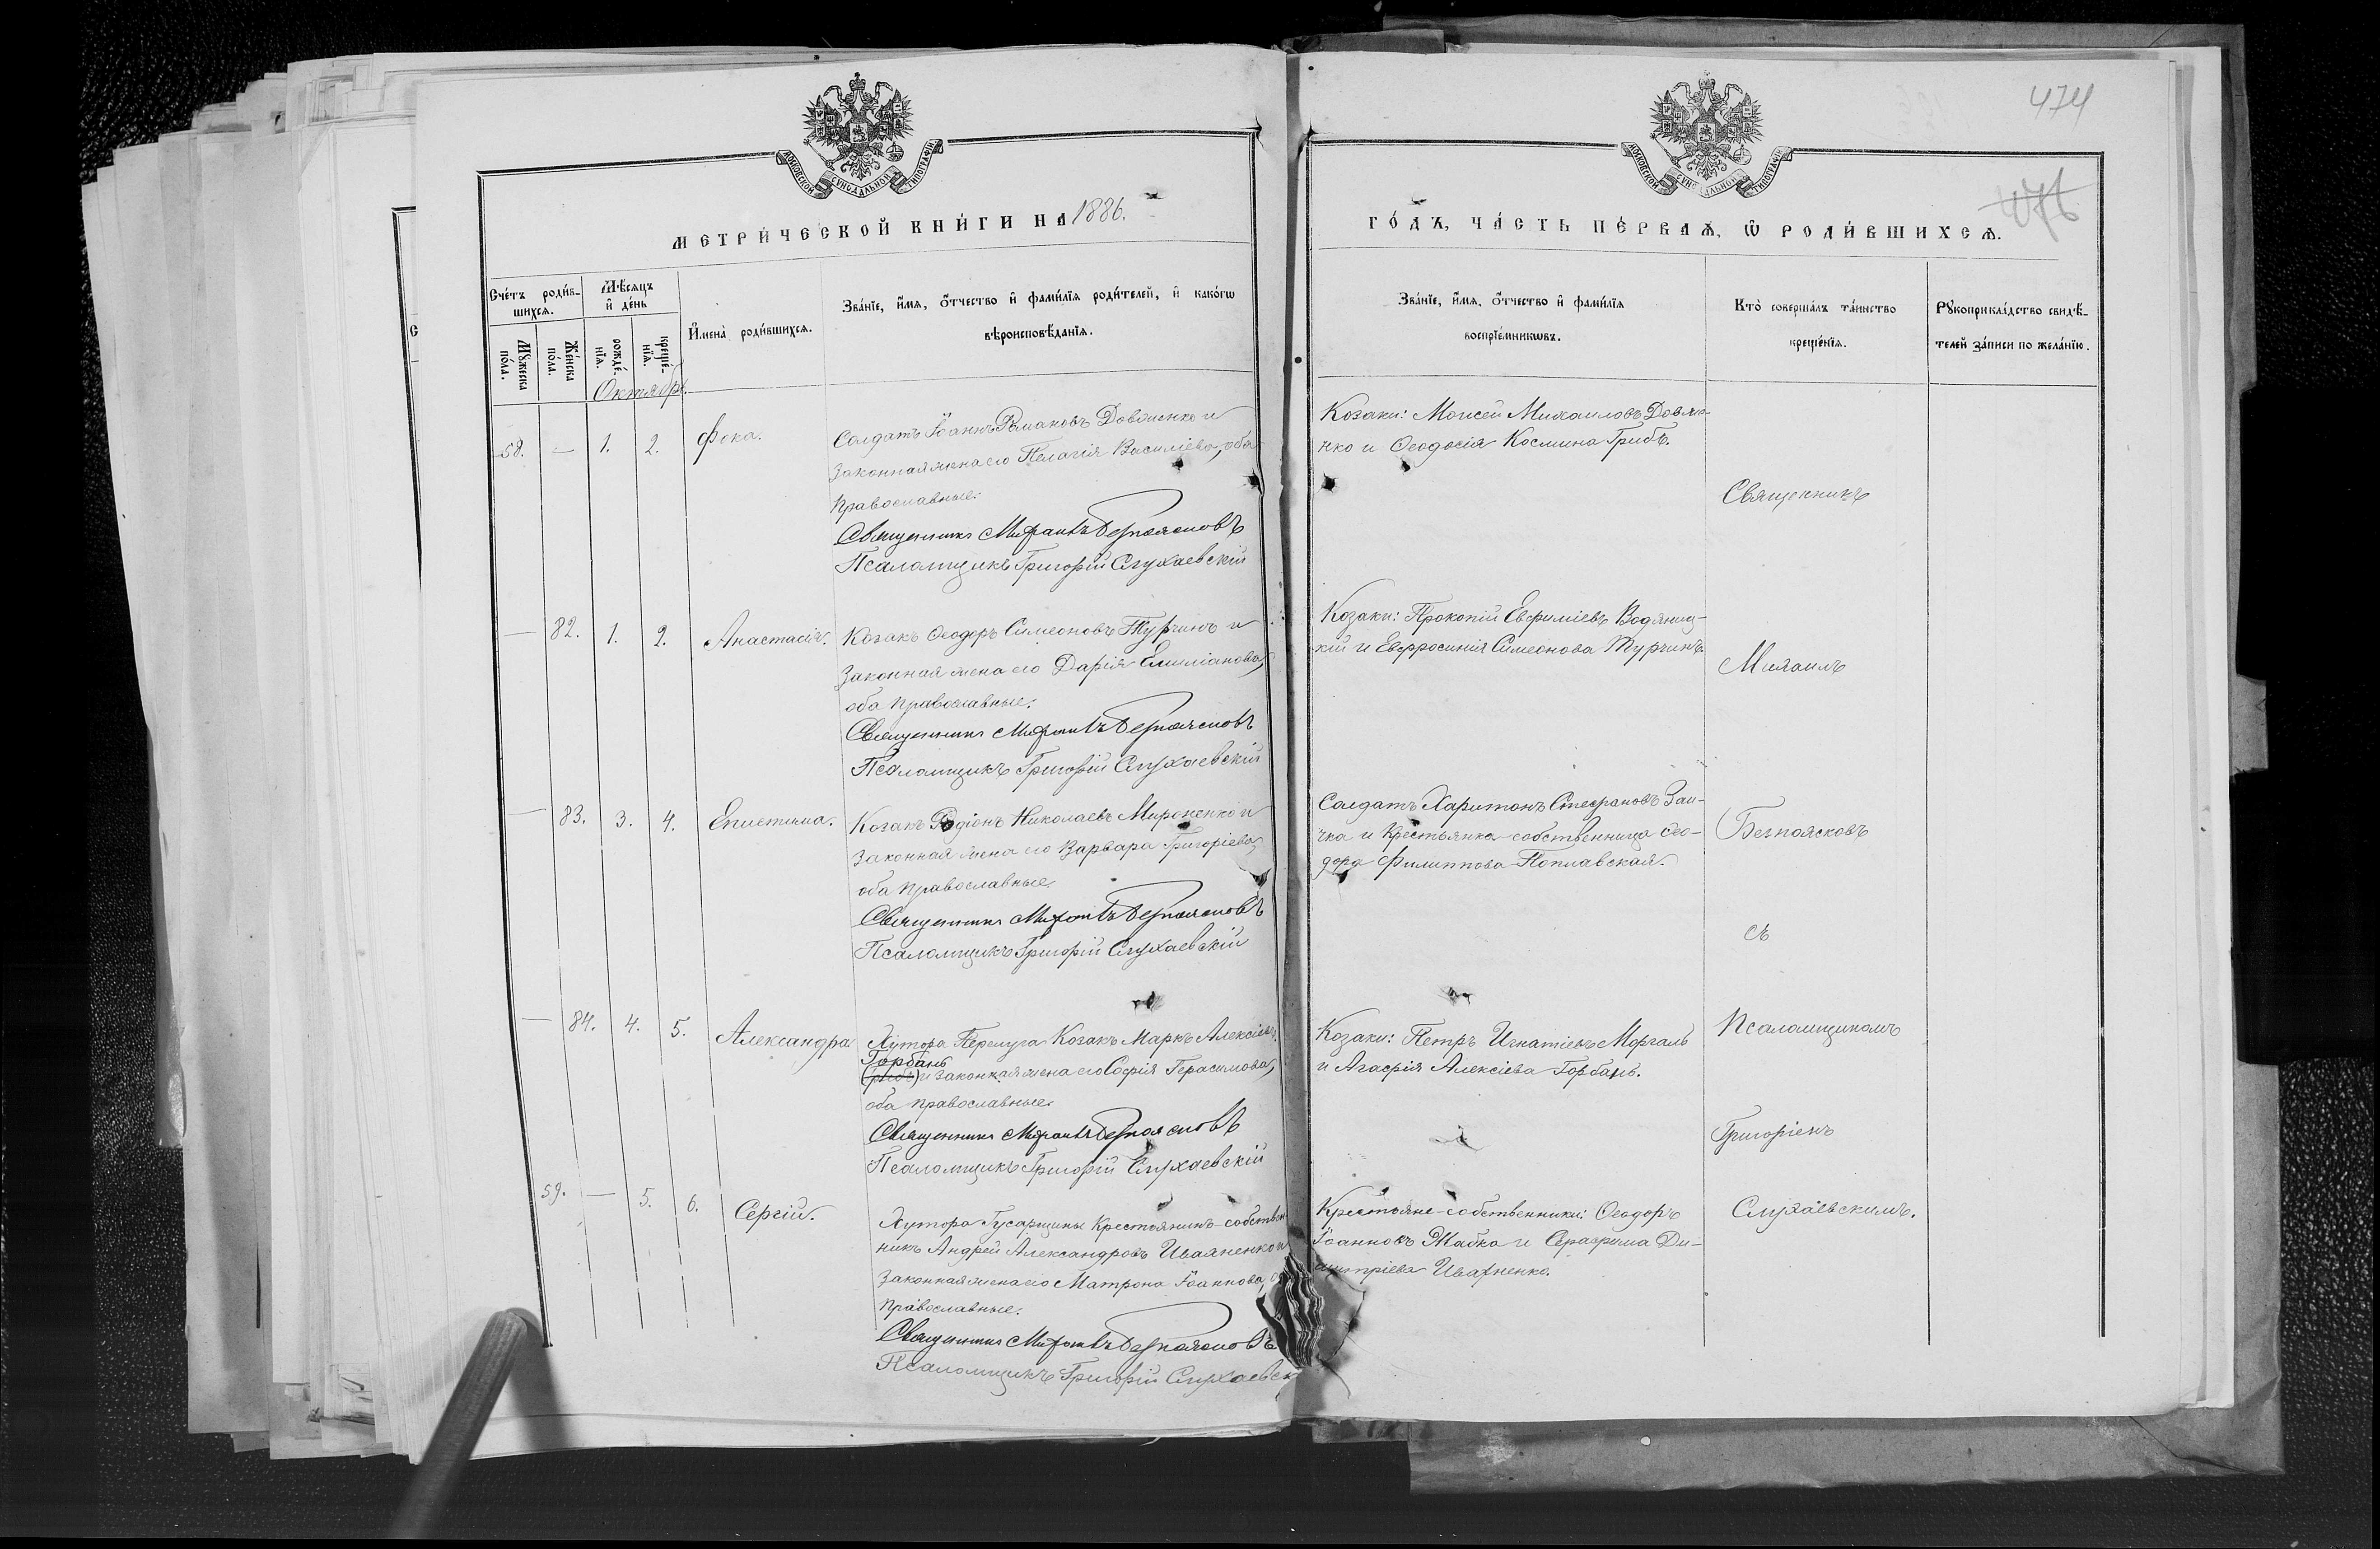 474
476
МОСКОВСКОЙ СѴНОДАЛЬНОЙ ТИПОГРАФІИ
МОСКОВСКОЙ СѴНОДАЛЬНОЙ ТИПОГРАФІИ
МЕТРИ́ЧЕСКОЙ КНИ́ГИ НА 1886.
ГО́ДЪ, ЧА́СТЬ ПЕ́РВАѦ, Ѿ РОДИ́ВШИХСѦ.
Сче́тъ роди́в-
шихсѧ.
Мꙋ́жеска по́ла.
Же́нска по́ла.
Мѣ́сѧцъ и҆ де́нь
рожде́-
нїѧ.
креще́-
нїѧ.
И҆мена̀ роди́вшихсѧ.
Зва́нїе, и҆́мѧ, ѻ҆́тчество и҆ фамѝлїѧ роди́телей, и҆ како́гѡ
вѣроисповѣ́данїѧ.
Зва́нїе, и҆́мѧ, ѻ҆́тчество и҆ фамѝлїѧ
воспрїе́мникѡвъ.
Кто̀ соверша́лъ та́инство
креще́нїѧ.
Рꙋкоприкла́дство свидѣ́-
телей за́писи по жела́нїю.
Октябрь.
58. — 1. 2. Фока.
Солдатъ Іоаннъ Романовъ Довженко и
законная жена его Пелагія Василіева, оба
православные.
Священникъ Михаилъ Безпоясковъ
Псаломщикъ Григорій Слухаевскій
Козаки: Моисей Михаиловъ Довже-
нко и Ѳеодосія Космина Грибъ.
— 82. 1. 2. Анастасія.
Козакъ Ѳеодоръ Симеоновъ Турчинъ и
законная жена его Дарія Емиліанова,
оба православные.
Священникъ Михаилъ Безпоясковъ
Псаломщикъ Григорій Слухаевскій
Козаки: Прокопій Евфиміевъ Водяниц-
кій и Евфросинія Симеонова Турчинъ
— 83. 3. 4. Епистима.
Козакъ Родіонъ Николаевъ Мироненко и
законная жена его Варвара Григоріева,
оба православные.
Священникъ Михаилъ Безпоясковъ
Псаломщикъ Григорій Слухаевскій
Солдатъ Харитонъ Стефановъ Заи-
чка и крестьянка-собственница Ѳео-
дора Филиппова Поплавская.
— 84. 4. 5. Александра
Хутора Перелуга Козакъ Маркъ Алексіевъ
Горбань
и законная жена его Софія Герасимова,
оба православные.
Священникъ Михаилъ Безпоясковъ
Псаломщикъ Григорій Слухаевскій
Козаки: Петръ Игнатіевъ Моргаль
и Агафія Алексіева Горбань.
59. — 5. 6. Сергій.
Хутора Гусарщины крестьянинъ-собствен-
никъ Андрей Александровъ Иваненко и
законная жена его Матрона Іоаннова,
православные.
Священникъ Михаилъ Безпоясковъ
Псаломщикъ Григорій Слухаевск
Крестьяне-собственники: Ѳеодоръ
Іоанновъ Жабка и Серафима Ди-
митріева Иваненко.
Священникъ
Михаилъ
Безпоясковъ
съ
Псаломщикомъ
Григоріемъ
Слухаевскимъ.